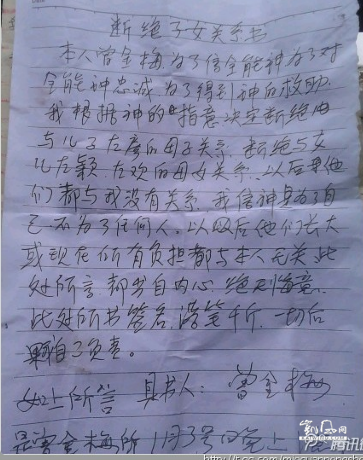 断绝子女关系书
本人曾金梅为了信全能神为了对
全能神忠诚为了得到神的救助
我根据神的"指意决定断绝由
与儿子左彦的母子关系.断绝与女
儿左颖.左欢的母女关系.以后其他
们都与我没有关系.我信神是为了自
己不为了任何人.以以后他们长大
或现在所有负担都与本人无关.此
处所言都出自内心.绝无悔意.
此处所书签名.落笔千斤.一切后
果自己负责.
以上所言 具书人: 曾金梅
是曾金梅所 1月3号晚上
腾讯